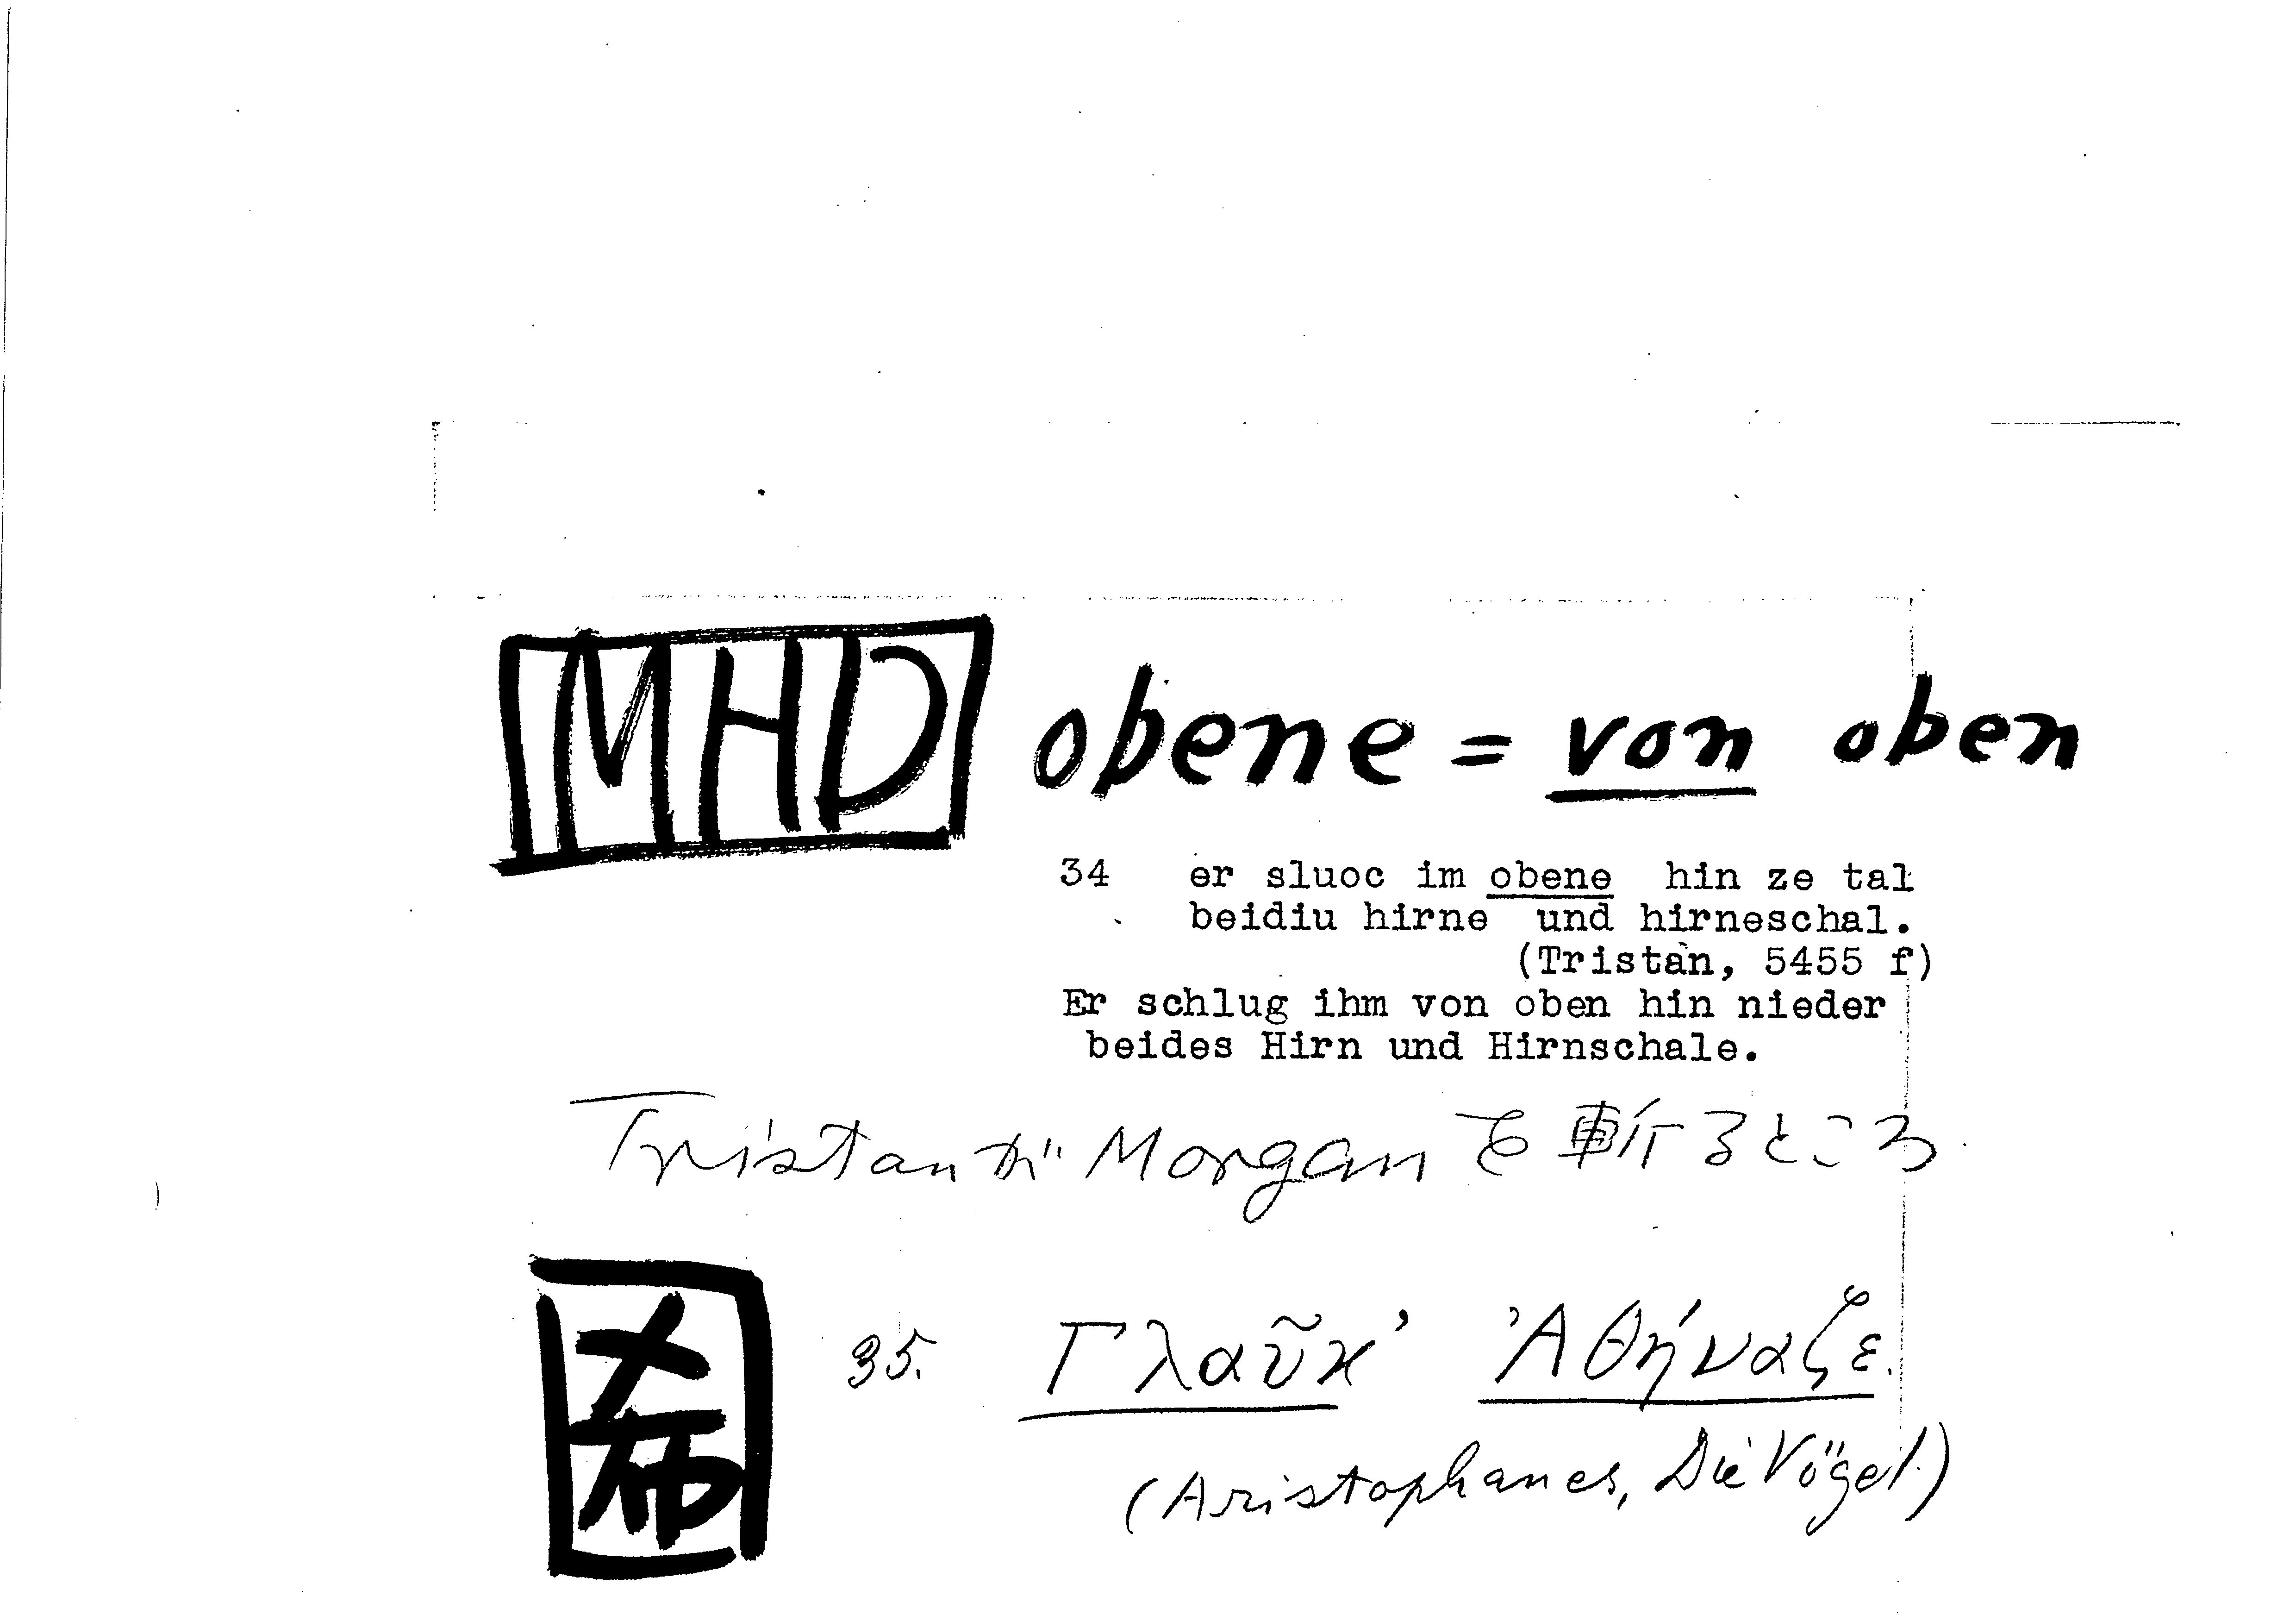 MHD obene = von oben
34 er sluoc im obene hin ze tal
beidiu hirne und hirneschal.
(Tristan, 5455 f)
Er schlug ihm von oben hin nieder
beides Hirn und Hirnschale.
Tristan が Morgan を斬るところ
希 35. Γλαῦκ' Ἀθήναζε.
(Aristophanes, Die Vögel)